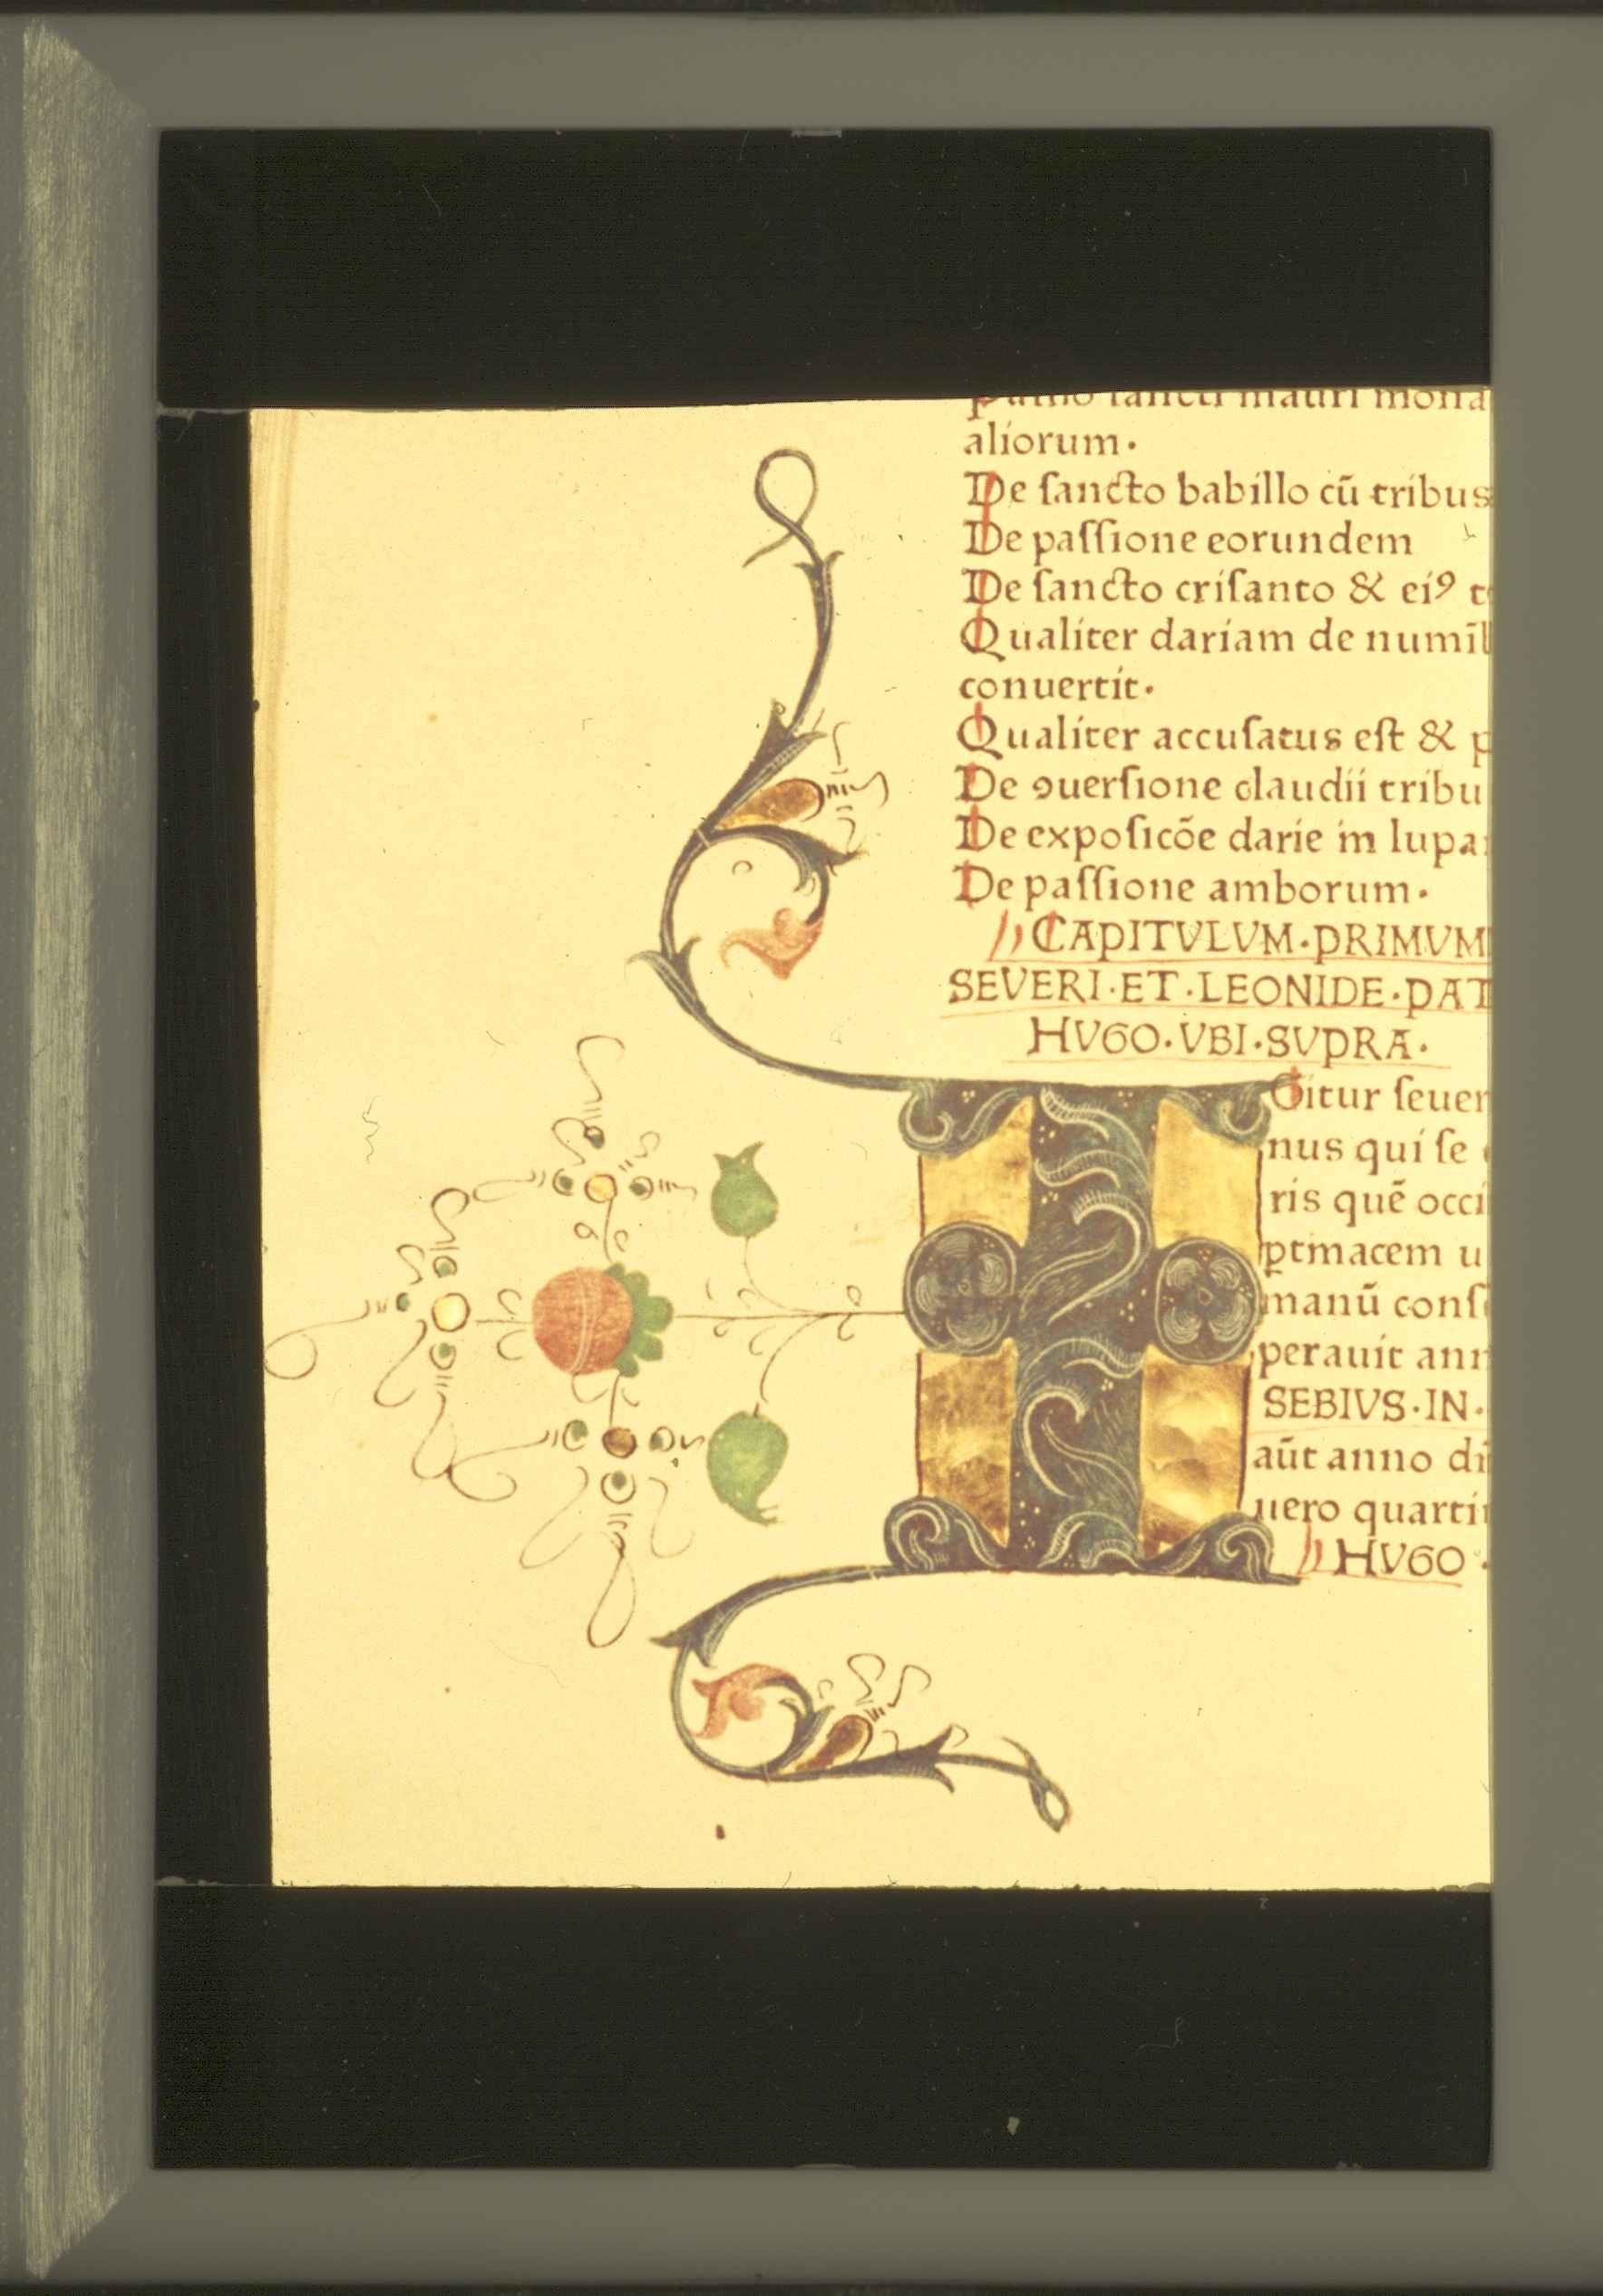 sancti mauri mona
aliorum.
De sancto babillo cū tribus
De passione eorundem
De sancto crisanto & eiꝰ t
Qualiter dariam de numīb
conuertit.
Qualiter accusatus est & p
De ꝯuersione claudii tribu
De exposicōe darie in lupa
De passione amborum.
CAPITVLVM·PRIMVM
SEVERI·ET·LEONIDE·PAT
HVGO·VBI·SVPRA·
I Gitur seuer
nus qui se
ris quē occi
ꝑtinacem u
manū cons
perauit ann
SEBIVS·IN·
aūt anno di
uero quarti
HVGO·